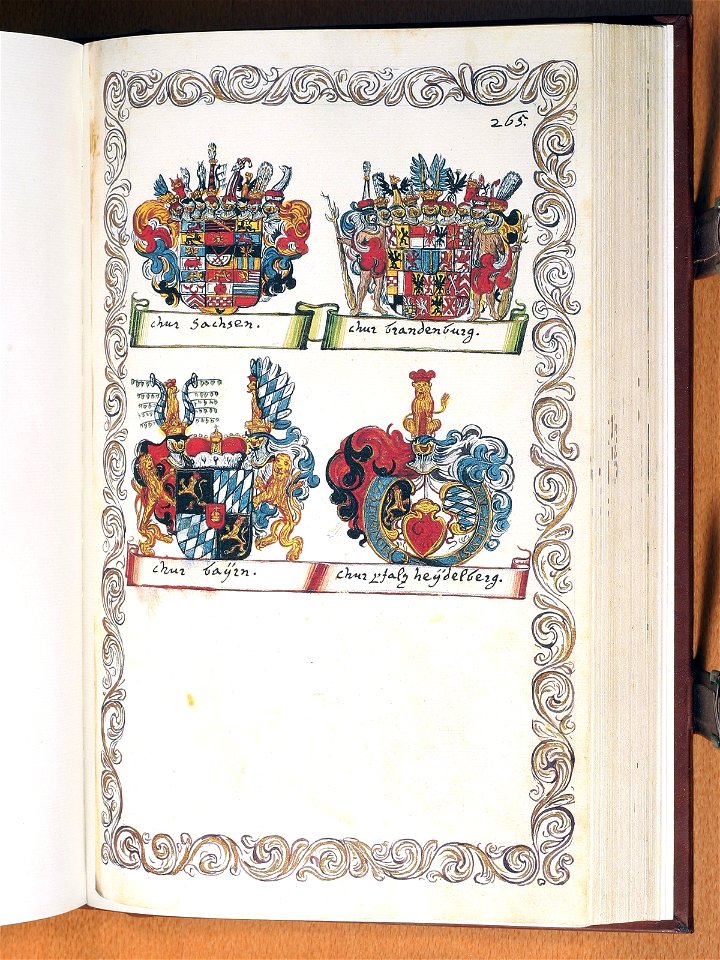 265.
chur Sachsen.
chur brandenburg.
chur baÿrn.
chur pfalz heÿdelberg.